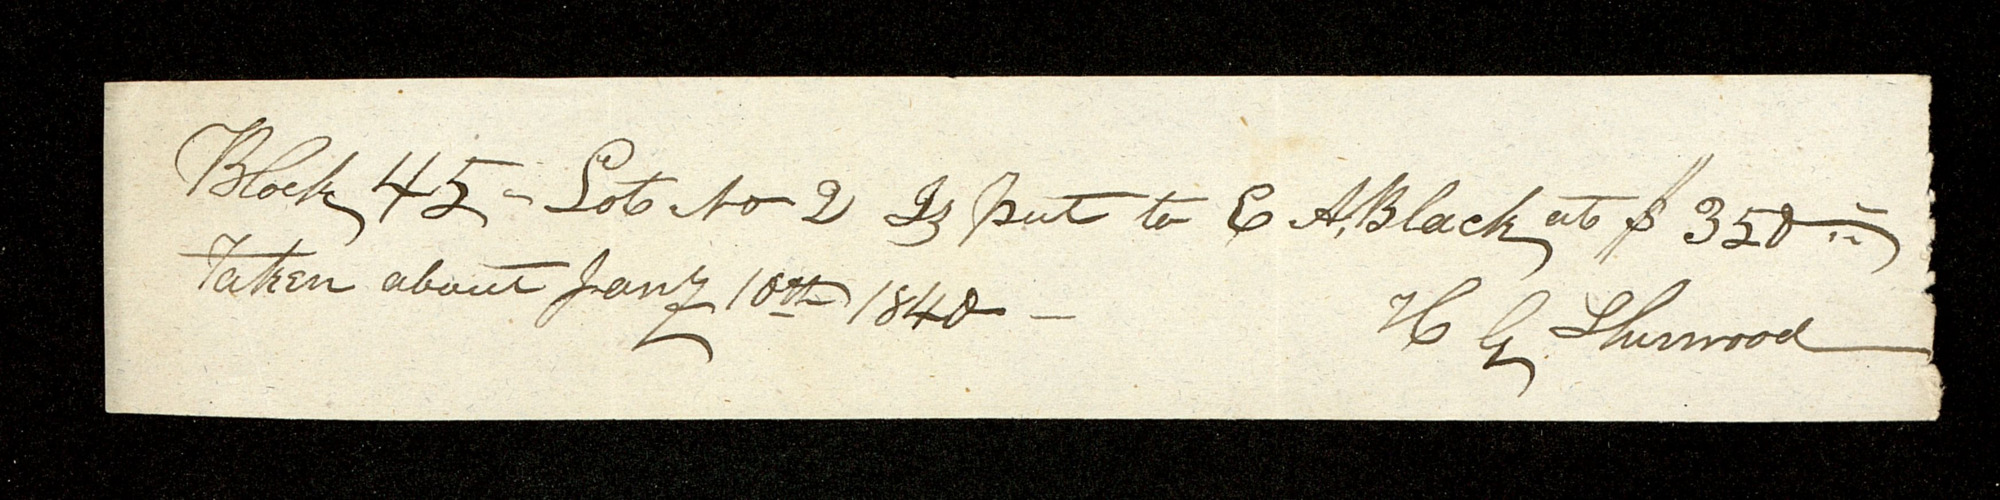 Block 45 - Lot No 2 Is put to E A, Black at $ 350..
Taken about Jany 10th 1840 -
H G. Sherwood